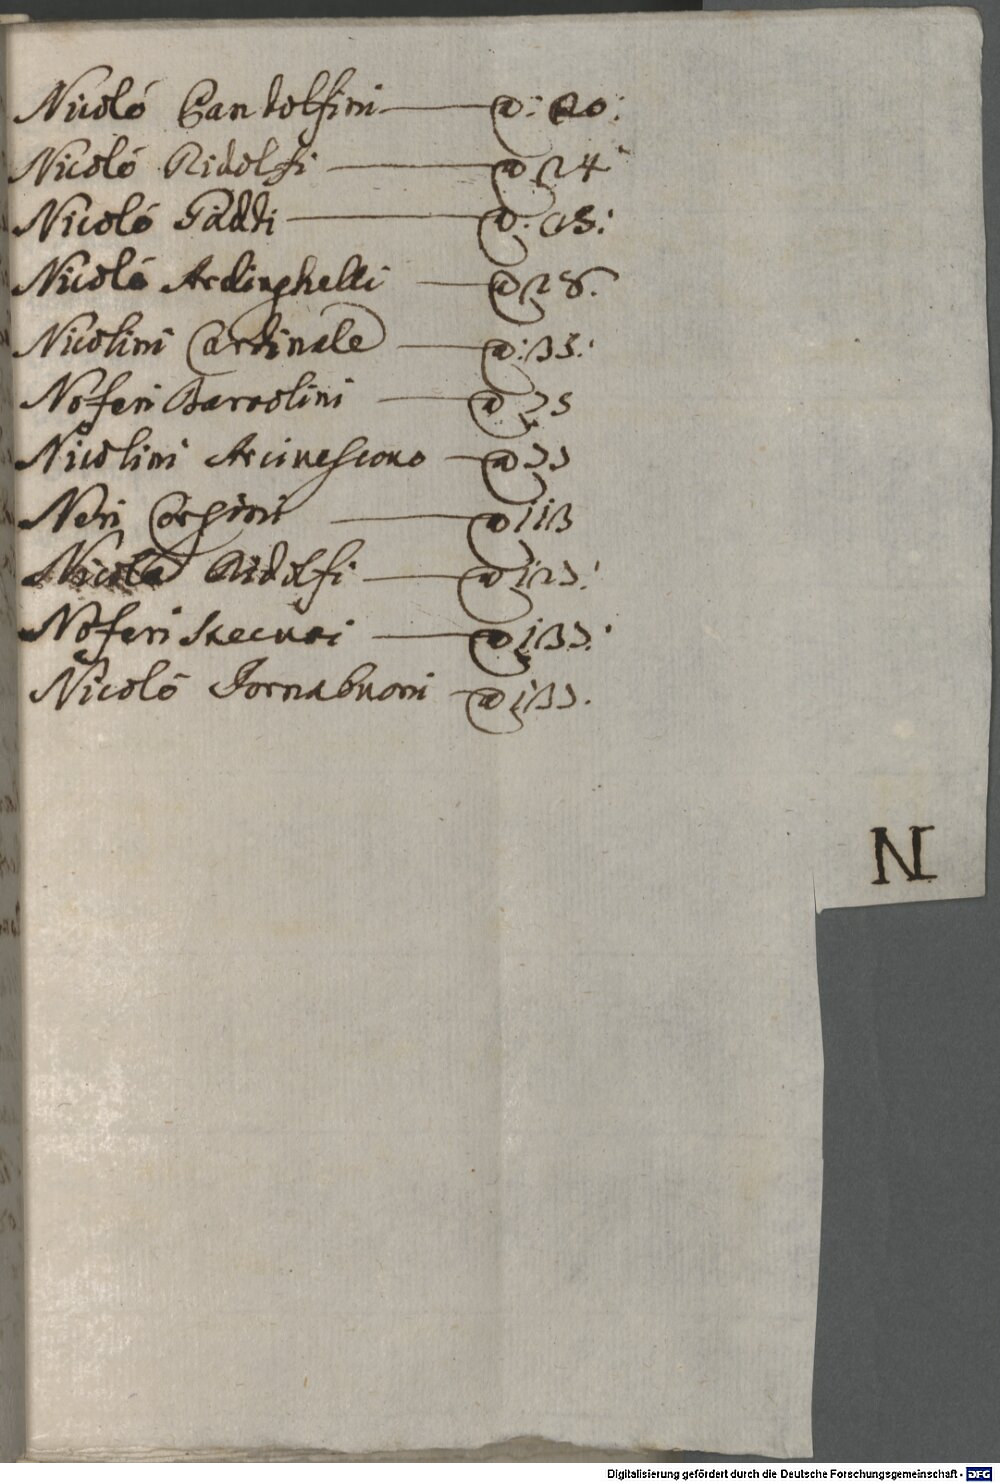 Nicoló Pandolfini — a: 20:
Nicoló Ridolfi — a 24
Nicoló Gaddi — a: 25:
Nicoló Ardinghelli — a 28.
Nicolini Cardinale — a: 33:
Noferi Bartolini — a 25
Nicolini Arcivescovo — a 33
Neri Corsini — a 113
Nicola Ridolfi — a 123:
Noferi — a 133:
Nicoló Tornabuoni — a 133.
N
Digitalisierung gefördert durch die Deutsche Forschungsgemeinschaft - DFG